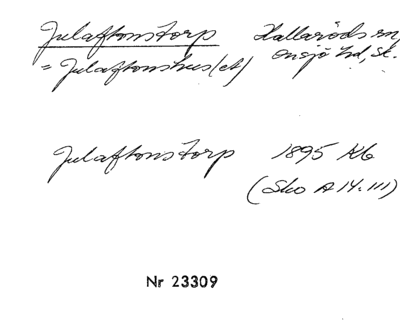 Julaftonstorp Hallaröds sn,
= Julaftonshus(et) Onsjö hd, Sk.
Julaftonstorp 1895 Kb
(Sko A 14. III)
Nr 23309